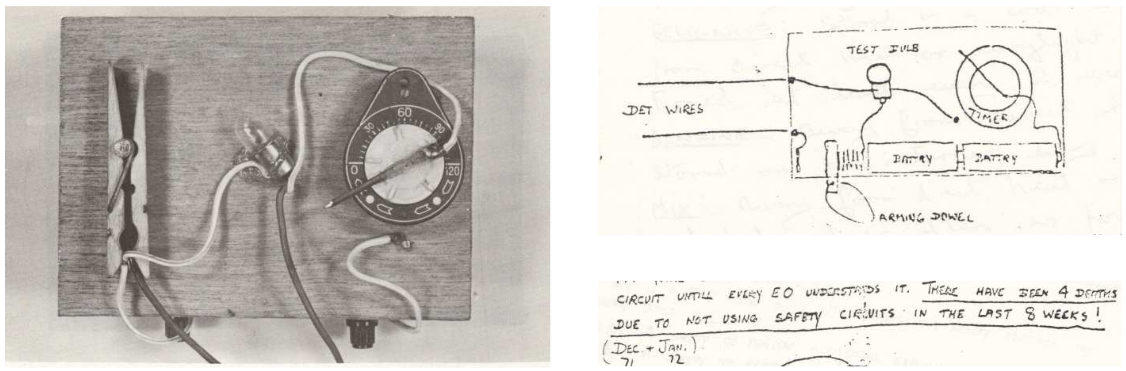 0 30 60 90 120
TEST BULB
DET WIRES
TIMER
BATTRY BATTRY
ARMING DOWEL
CIRCUIT UNTILL EVERY EO UNDERSTANDS IT. THERE HAVE BEEN 4 DEATHS
DUE TO NOT USING SAFETY CIRCUITS IN THE LAST 8 WEEKS!
(DEC. + JAN.)
71 72